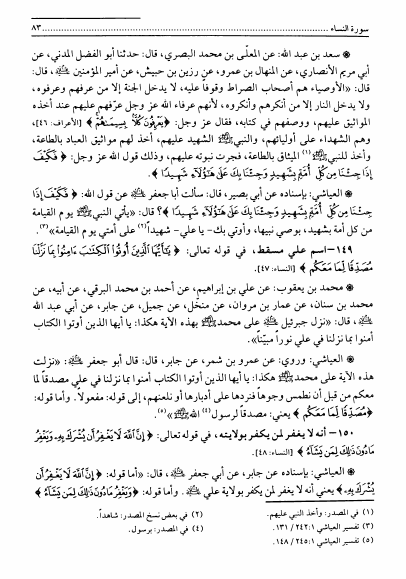 سورة النساء ........ ٨٣
❋ سعد بن عبد الله: عن المعلّى بن محمد البصري، قال: حدثنا أبو الفضل المدني، عن
أبي مريم الأنصاري، عن المنهال بن عمرو، عن رزين بن حبيش، عن أمير المؤمنين ﷺ، قال:
«الأوصياء هم أصحاب الصراط وقوفاً عليه، لا يدخل الجنة إلا من عرفهم وعرفوه،
ولا يدخل النار إلا من أنكرهم وأنكروه، لأنهم عرفاء الله عز وجل عرّفهم عليهم عند أخذه
المواثيق عليهم، ووصفهم في كتابه، فقال عز وجل: ﴿يَعْرِفُونَ كُلًّا بِسِيمَاهُمْ﴾ [الأعراف: ٤٦]،
وهم الشهداء على أوليائهم، والنبي ﷺ الشهيد عليهم، أخذ لهم مواثيق العباد بالطاعة،
وأخذ للنبي ﷺ (١) الميثاق بالطاعة، فجرت نبوته عليهم، وذلك قول الله عز وجل: ﴿فَكَيْفَ
إِذَا جِئْنَا مِن كُلِّ أُمَّةٍ بِشَهِيدٍ وَجِئْنَا بِكَ عَلَىٰ هَٰؤُلَاءِ شَهِيدًا﴾.
❋ العياشي: بإسناده عن أبي بصير، قال: سألت أبا جعفر ﷺ عن قول الله: ﴿فَكَيْفَ إِذَا
جِئْنَا مِن كُلِّ أُمَّةٍ بِشَهِيدٍ وَجِئْنَا بِكَ عَلَىٰ هَٰؤُلَاءِ شَهِيدًا﴾؟ قال: «يأتي النبي ﷺ يوم القيامة
من كل أمة بشهيد، بوصي نبيها، وأوتي بك- يا علي- شهيداً(٢) على أمتي يوم القيامة»(٣).
١٤٩-اسم علي مسقط، في قوله تعالى: ﴿يَا أَيُّهَا الَّذِينَ أُوتُوا الْكِتَابَ آمِنُوا بِمَا نَزَّلْنَا
مُصَدِّقًا لِّمَا مَعَكُم﴾ [النساء: ٤٧].
❋ محمد بن يعقوب: عن علي بن إبراهيم، عن أحمد بن محمد البرقي، عن أبيه، عن
محمد بن سنان، عن عمار بن مروان، عن منخّل، عن جميل، عن جابر، عن أبي عبد الله
ﷺ، قال: «نزل جبرئيل ﷺ على محمد ﷺ بهذه الآية هكذا: يا أيها الذين أوتوا الكتاب
آمنوا بما نزلنا في علي نوراً مبيّناً».
❋ العياشي: وروي: عن عمرو بن شمر، عن جابر، قال: قال أبو جعفر ﷺ: «نزلت
هذه الآية على محمد ﷺ هكذا: يا أيها الذين أوتوا الكتاب آمنوا بما نزلنا في علي مصدقاً لما
معكم من قبل أن نطمس وجوهاً فنردها على أدبارها أو نلعنهم، إلى قوله: مفعولاً. وأما قوله:
﴿مُصَدِّقًا لِّمَا مَعَكُم﴾ يعني: مصدقاً لرسول(٤) الله ﷺ»(٥).
١٥٠- أنه لا يغفر لمن يكفر بولايته، في قوله تعالى: ﴿إِنَّ اللَّهَ لَا يَغْفِرُ أَن يُشْرَكَ بِهِ وَيَغْفِرُ
مَا دُونَ ذَٰلِكَ لِمَن يَشَاءُ﴾ [النساء: ٤٨].
❋ العياشي: بإسناده عن جابر، عن أبي جعفر ﷺ، قال: «أما قوله: ﴿إِنَّ اللَّهَ لَا يَغْفِرُ أَن
يُشْرَكَ بِهِ﴾ يعني أنه لا يغفر لمن يكفر بولاية علي ﷺ. وأما قوله: ﴿وَيَغْفِرُ مَا دُونَ ذَٰلِكَ لِمَن يَشَاءُ﴾
(١) في المصدر: وأخذ النبي عليهم. (٢) في بعض نسخ المصدر: شاهداً.
(٣) تفسير العياشي ١: ٢٤٢/ ١٣١. (٤) في المصدر: برسول.
(٥) تفسير العياشي ١: ٢٤٥/ ١٤٨.